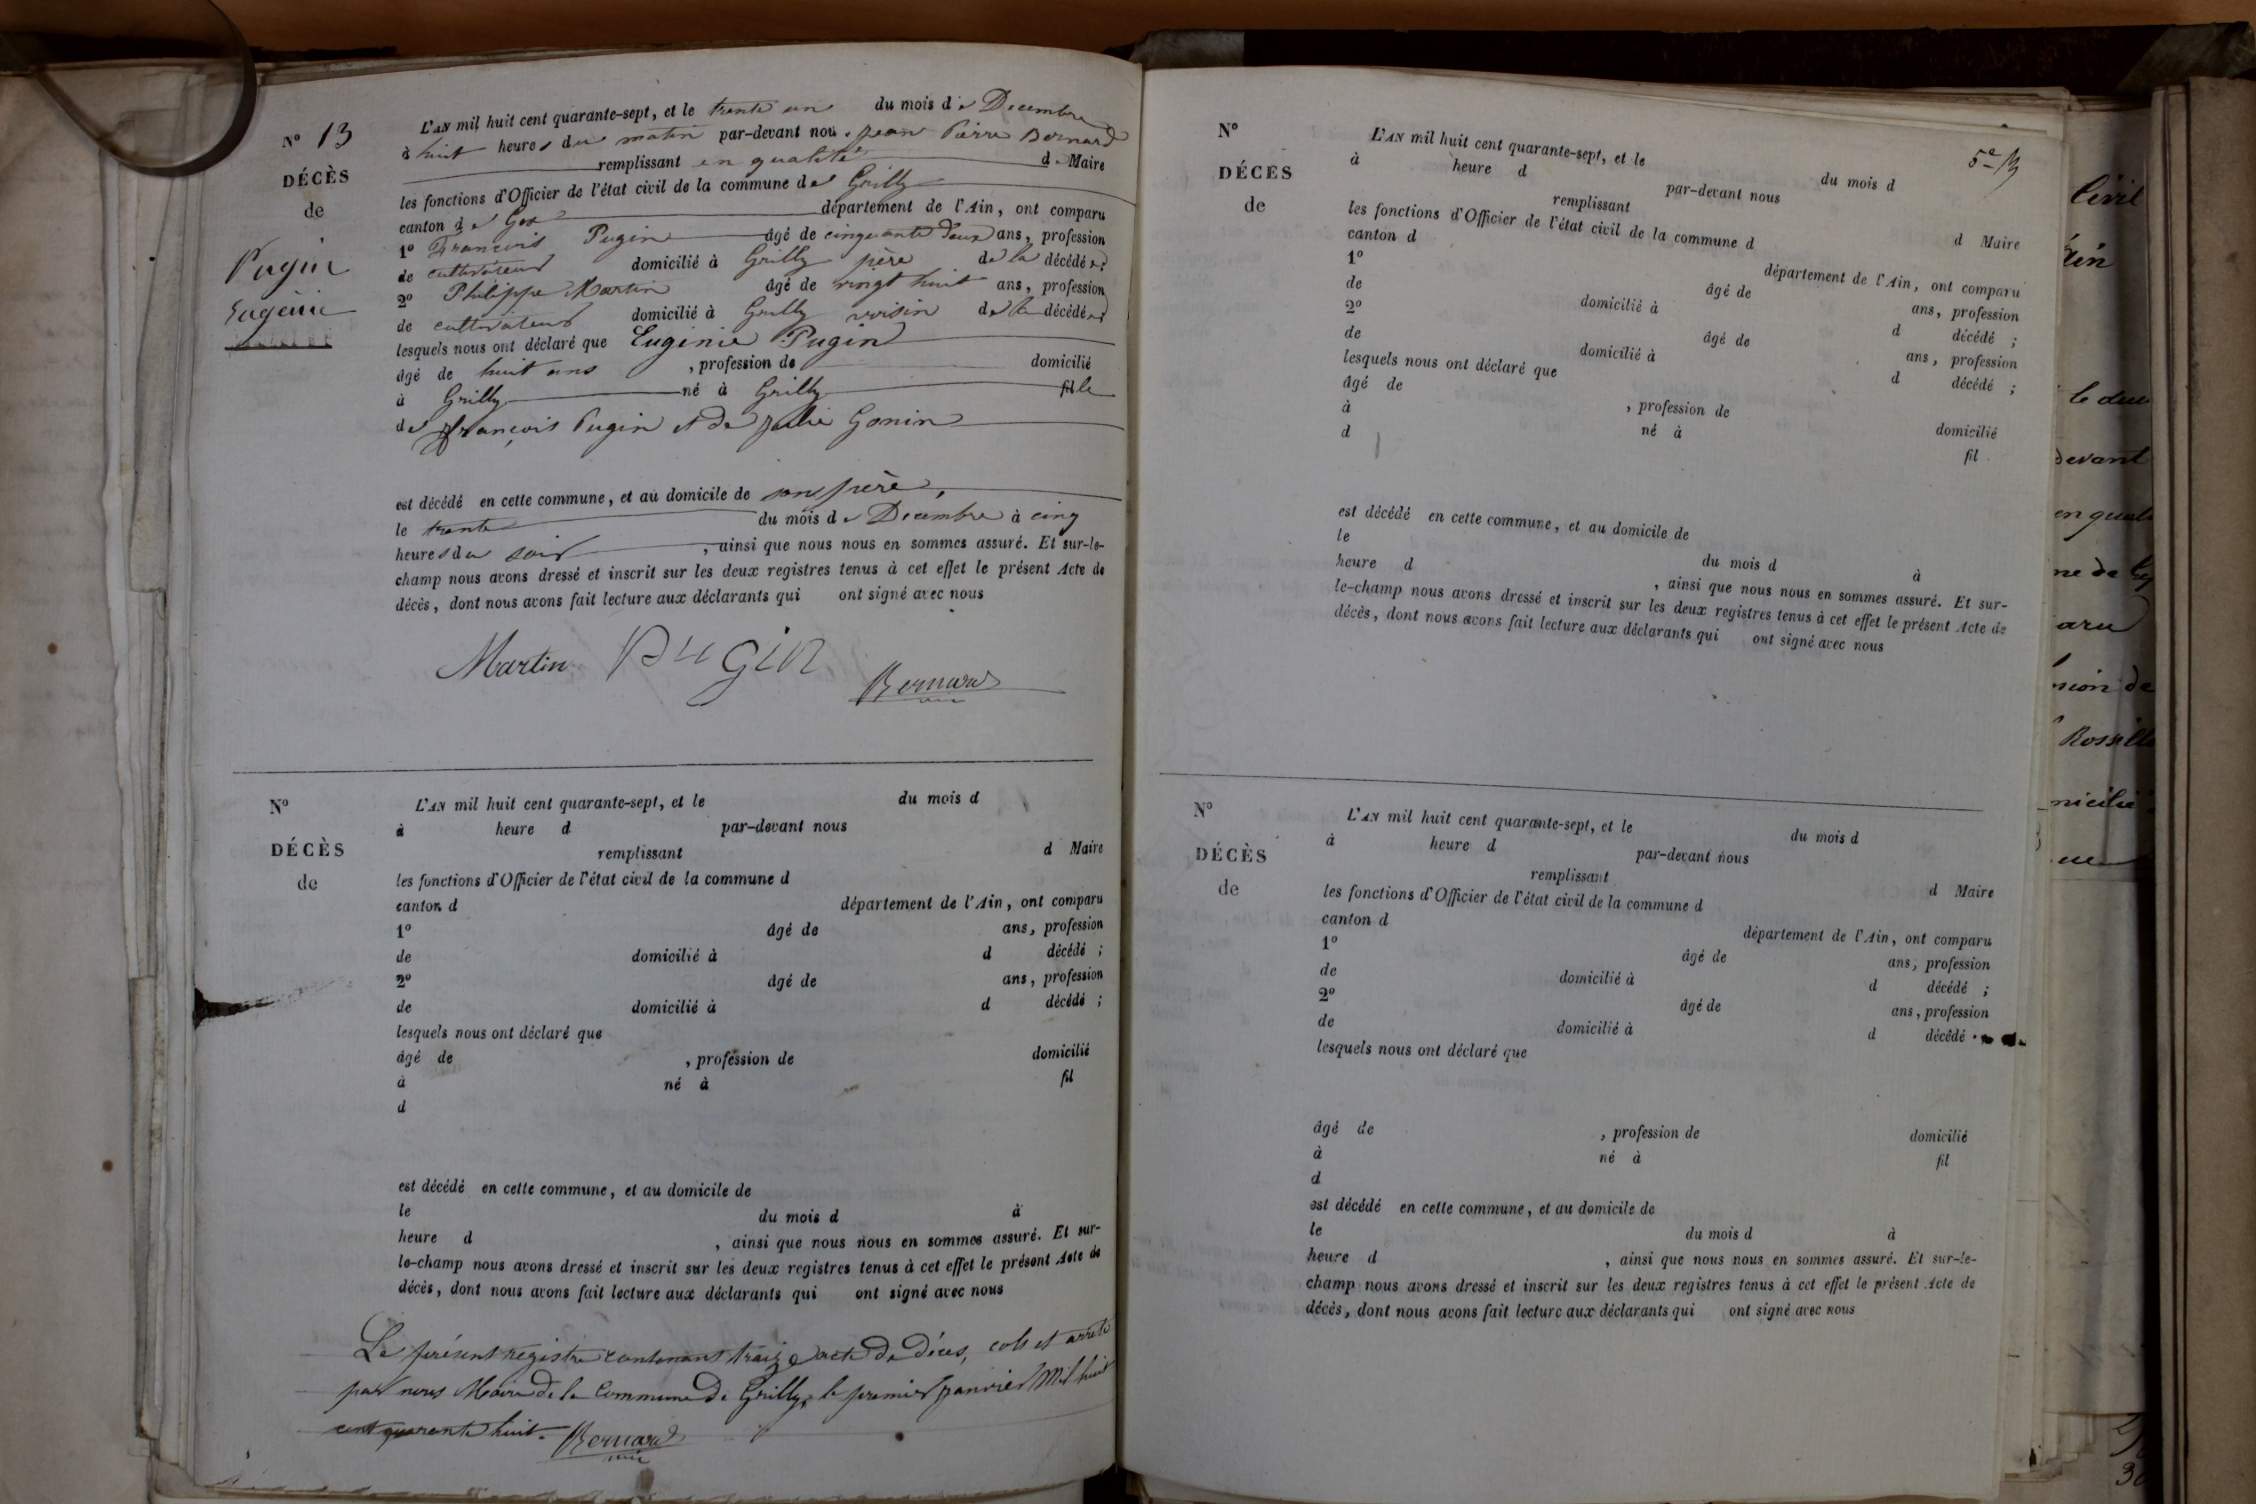 N° 13
DÉCÈS
de
Pugin
Eugénie
L'AN mil huit cent quarante-sept, et le trente un du mois de Decembre
à huit heures du matin par-devant nous jean Pierre Bernard
remplissant en qualité de Maire
les fonctions d'Officier de l'état civil de la commune de Grilly
canton de Gex département de l'Ain, ont comparu
1° Francois Pugin âgé de cinquante deux ans, profession
de cultivateur domicilié à Grilly père de la décédée;
2° Philippe Martin âgé de vingt huit ans, profession
de cultivateur domicilié à Grilly voisin de la décédée;
lesquels nous ont déclaré que Eugénie Pugin
âgé de huit ans , profession de domicilié
à Grilly né à Grilly fille
de françois Pugin et de julie Gonin
est décédé en cette commune, et au domicile de son père,
le trente du mois de Decembre à cinq
heures du soir , ainsi que nous nous en sommes assuré. Et sur-le-
champ nous avons dressé et inscrit sur les deux registres tenus à cet effet le présent Acte de
décès, dont nous avons fait lecture aux déclarants qui ont signé avec nous
Martin PuGin Bernard
N°
DÉCÈS
de
L'AN mil huit cent quarante-sept, et le du mois d
à heure d par-devant nous
remplissant d Maire
les fonctions d'Officier de l'état civil de la commune d
canton d département de l'Ain, ont comparu
1° âgé de ans, profession
de domicilié à d décédé ;
2° âgé de ans, profession
de domicilié à d décédé ;
lesquels nous ont déclaré que
âgé de , profession de domicilié
à né à fil
d
est décédé en cette commune, et au domicile de
le du mois d à
heure d , ainsi que nous nous en sommes assuré. Et sur-
le-champ nous avons dressé et inscrit sur les deux registres tenus à cet effet le présent Acte de
décès, dont nous avons fait lecture aux déclarants qui ont signé avec nous
Le présent registre contenant traize acte de déces, clos et arrêté
par nous Maire de la Commune de Grilly, le premier janvier Mil huit
cent quarente huit. Bernard
N°
DÉCÈS
de
5e
L'AN mil huit cent quarante-sept, et le du mois d
à heure d par-devant nous
remplissant d Maire
les fonctions d'Officier de l'état civil de la commune d
canton d département de l'Ain, ont comparu
1° âgé de ans, profession
de domicilié à d décédé ;
2° âgé de ans, profession
de domicilié à d décédé ;
lesquels nous ont déclaré que
âgé de , profession de domicilié
à né à fil
d
est décédé en cette commune, et au domicile de
le du mois d à
heure d , ainsi que nous nous en sommes assuré. Et sur-
le-champ nous avons dressé et inscrit sur les deux registres tenus à cet effet le présent Acte de
décès, dont nous avons fait lecture aux déclarants qui ont signé avec nous
N°
DÉCÈS
de
L'AN mil huit cent quarante-sept, et le du mois d
à heure d par-devant nous
remplissant d Maire
les fonctions d'Officier de l'état civil de la commune d
canton d département de l'Ain, ont comparu
1° âgé de ans, profession
de domicilié à d décédé ;
2° âgé de ans, profession
de domicilié à d décédé
lesquels nous ont déclaré que
âgé de , profession de domicilié
à né à fil
d
est décédé en cette commune, et au domicile de
le du mois d à
heure d , ainsi que nous nous en sommes assuré. Et sur-le-
champ nous avons dressé et inscrit sur les deux registres tenus à cet effet le présent Acte de
décès, dont nous avons fait lecture aux déclarants qui ont signé avec nous
Civil
devant